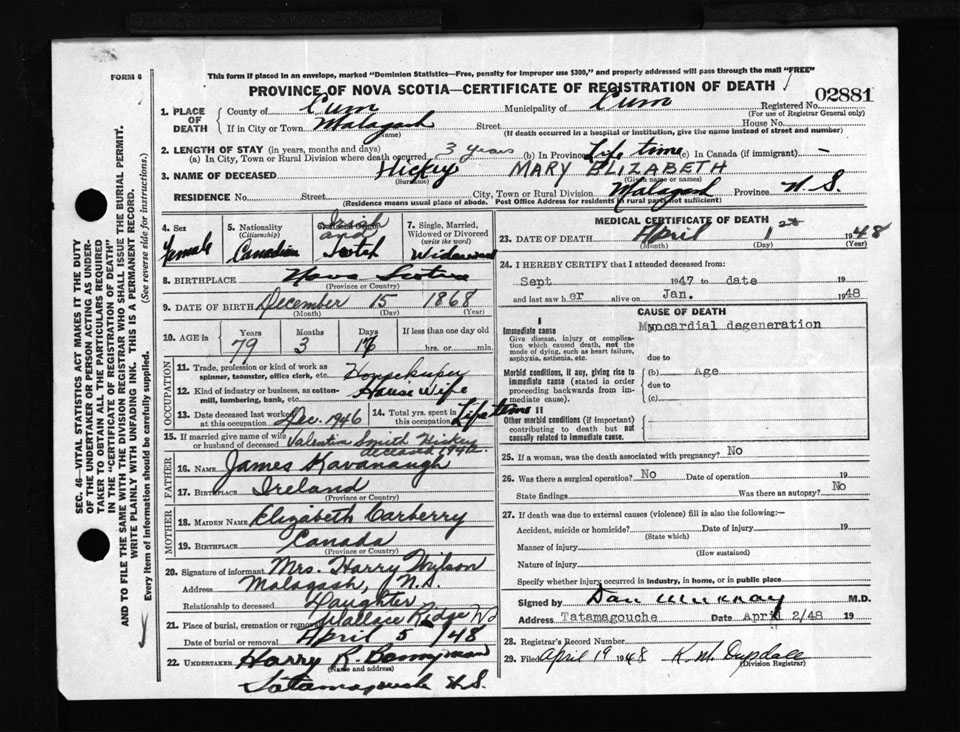 FORM 6
This form if placed in an envelope, marked "Dominion Statistics—Free, penalty for improper use $300," and properly addressed will pass through the mail "FREE"
PROVINCE OF NOVA SCOTIA—CERTIFICATE OF REGISTRATION OF DEATH
02881
1. PLACE OF DEATH
County of Cum Municipality of Cum Registered No.
(For use of Registrar General only)
If in City or Town Malagash Street House No.
(Name) (If death occurred in a hospital or institution, give the name instead of street and number)
2. LENGTH OF STAY (in years, months and days)
(a) In City, Town or Rural Division where death occurred 3 years (b) In Province Life time (c) In Canada (if immigrant) —
3. NAME OF DECEASED Hickey MARY ELIZABETH
(Surname) (Given name or names)
RESIDENCE No. Street City, Town or Rural Division Malagash Province N.S.
(Residence means usual place of abode. Post Office Address for residents in rural parts not sufficient)
4. Sex
Female
5. Nationality
(Citizenship)
Canadian
Irish and Scotch
7. Single, Married, Widowed or Divorced
(write the word)
Widowed
8. BIRTHPLACE Nova Scotia
(Province or Country)
9. DATE OF BIRTH December 15 1868
(Month) (Day) (Year)
10. AGE in Years Months Days If less than one day old
79 3 hrs. or min.
OCCUPATION
11. Trade, profession or kind of work as spinner, teamster, office clerk, etc. Housekeeper
12. Kind of industry or business, as cotton-mill, lumbering, bank, etc. House Wife
13. Date deceased last worked at this occupation Dec. 1946
14. Total yrs. spent in this occupation Life time
15. If married give name of wife or husband of deceased Valentin Smith Hickey
deceased
FATHER
16. NAME James Kavanaugh
17. BIRTHPLACE Ireland
(Province or Country)
MOTHER
18. MAIDEN NAME Elizabeth Carberry
19. BIRTHPLACE Canada
(Province or Country)
20. Signature of informant Mrs. Harry Wilson
Address Malagash, N.S.
Relationship to deceased Daughter
21. Place of burial, cremation or removal Wallace Ridge
Date of burial or removal April 5 /48
22. UNDERTAKER Harry R.
(Name and address)
Tatamagouche N.S.
MEDICAL CERTIFICATE OF DEATH
23. DATE OF DEATH April 1st 1948
(Month) (Day) (Year)
24. I HEREBY CERTIFY that I attended deceased from:
Sept 1947 to date 19
and last saw her alive on Jan. 1948
CAUSE OF DEATH
I
Immediate cause
Give disease, injury or complication which caused death, not the mode of dying, such as heart failure, asphyxia, asthenia, etc.
Myocardial degeneration
due to
Morbid conditions, if any, giving rise to immediate cause (stated in order proceeding backwards from immediate cause).
(b) Age
due to
(c)
II
Other morbid conditions (if important) contributing to death but not causally related to immediate cause.
25. If a woman, was the death associated with pregnancy? No
26. Was there a surgical operation? No Date of operation 19
State findings Was there an autopsy? No
27. If death was due to external causes (violence) fill in also the following:—
Accident, suicide or homicide? Date of injury 19
(State which)
Manner of injury
(How sustained)
Nature of injury
Specify whether injury occurred in industry, in home, or in public place
Signed by Dan Murray M.D.
Address Tatamagouche Date April 2/48 19
28. Registrar's Record Number
29. Filed April 19 1948
(Division Registrar)
SEC. 46—VITAL STATISTICS ACT MAKES IT THE DUTY
OF THE UNDERTAKER OR PERSON ACTING AS UNDER-
TAKER TO OBTAIN ALL THE PARTICULARS REQUIRED
IN THE "CERTIFICATE OF REGISTRATION OF DEATH"
AND TO FILE THE SAME WITH THE DIVISION REGISTRAR WHO SHALL ISSUE THE BURIAL PERMIT.
WRITE PLAINLY WITH UNFADING INK. THIS IS A PERMANENT RECORD.
Every item of information should be carefully supplied. (See reverse side for instructions.)